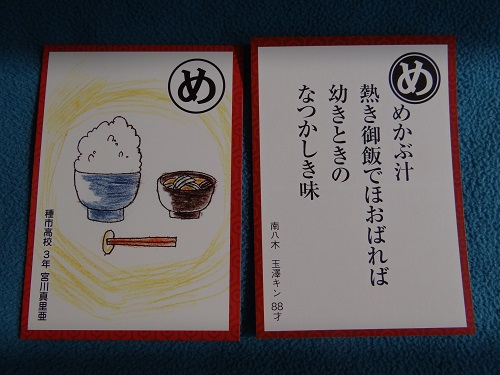 め
種市高校 3年 宮川真里亜
め
めかぶ汁
熱き御飯でほおばれば
幼きときの
なつかしき味
南八木 玉澤キン 88才